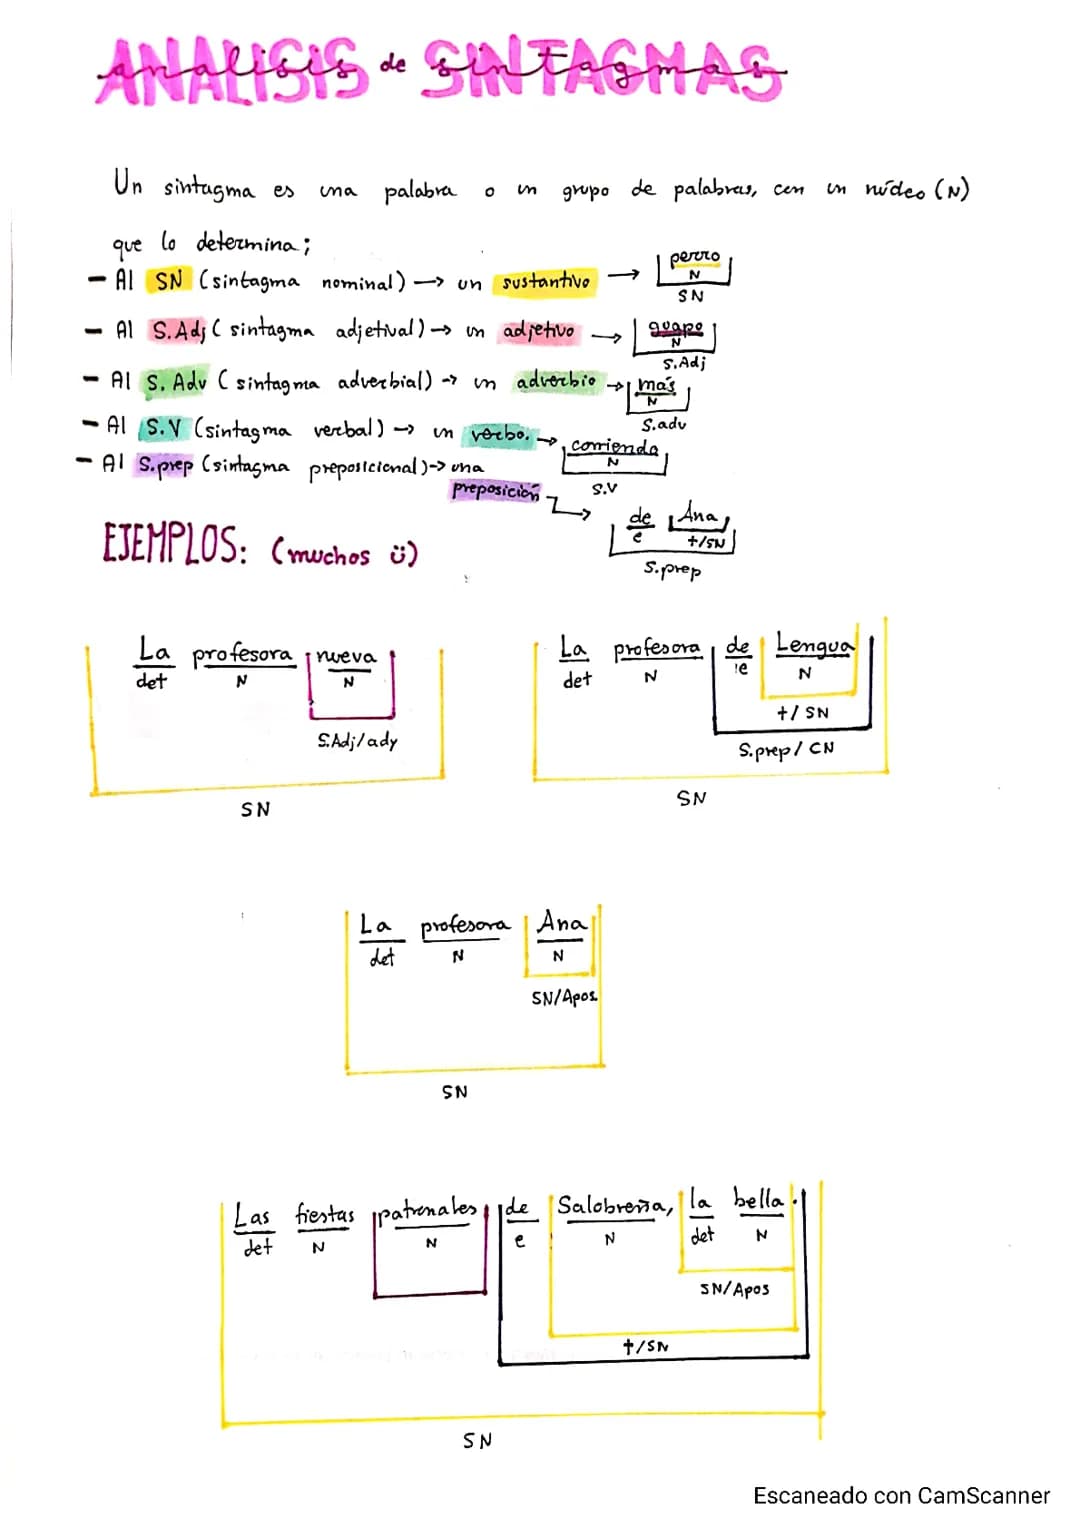 ANALISIS de SINTAGMAS
analisis sintagmas
Un sintagma es una palabra o un grupo de palabras, con un núcleo (N)
que lo determina;
- Al SN (sintagma nominal) → un sustantivo → perro
N
SN
- Al S.Adj (sintagma adjetival) → un adjetivo → guapo
N
S.Adj
- Al S. Adv (sintagma adverbial) → un adverbio → más
N
S.adv
- Al S.V (sintagma verbal) → un verbo. → corriendo
N
S.V
- Al S.prep (sintagma preposicional) → una
preposición → de Ana
e t/SN
S.prep
EJEMPLOS: (muchos ü)
La profesora nueva
det N N
S.Adj/ady
SN
La profesora de Lengua
det N e N
t/SN
S.prep/CN
SN
La profesora Ana
det N N
SN/Apos
SN
Las fiestas patronales de Salobreña, la bella.
det N N e N det N
SN/Apos
t/SN
SN
Escaneado con CamScanner